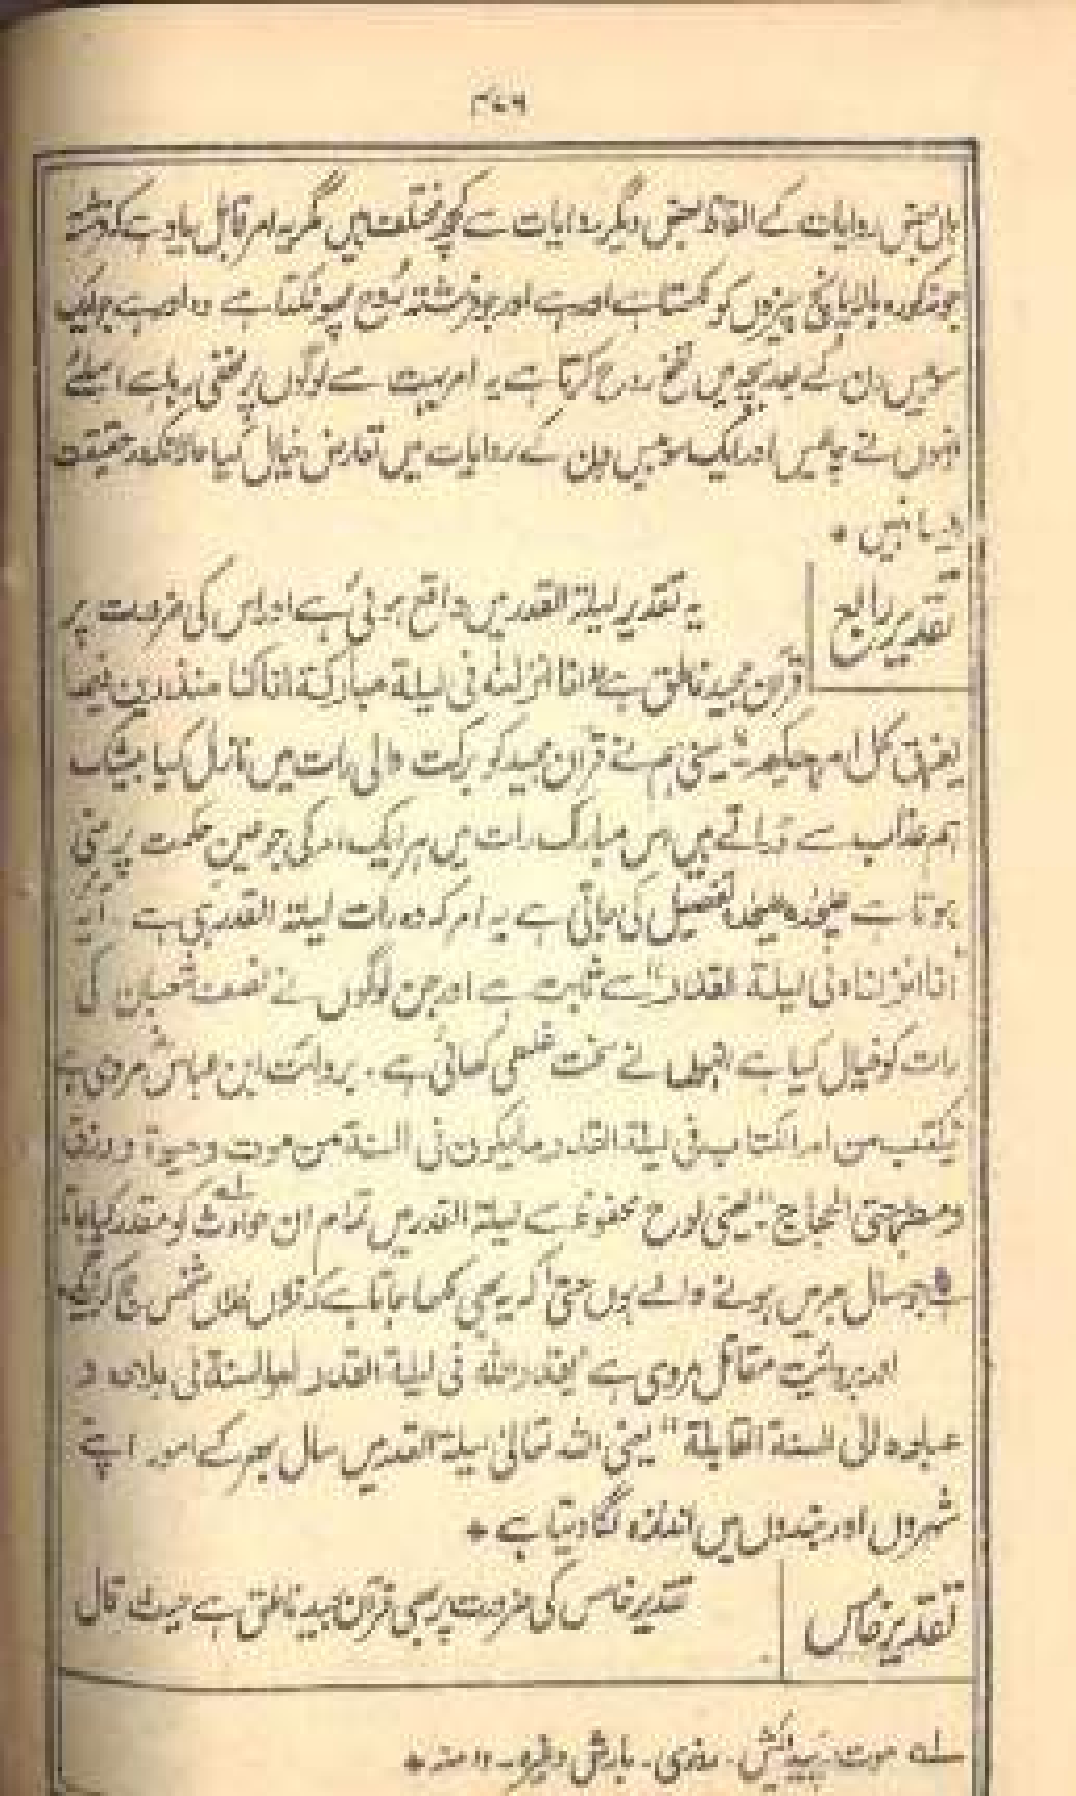 ۴۷۶
ہاں بعض روایات کے الفاظ بعض دیگر روایات سے کچھ مختلف ہیں مگر یہ امر قابل یاد ہے کہ فرشتہ
جو مذکورہ بالا پانچ چیزوں کو لکھتا ہے اور ہے اور جو فرشتہ روح پھونکتا ہے وہ اور ہے جو ایک
سو بیس دن کے بعد بچہ میں نفخ روح کرتا ہے یہ امر بہت سے لوگوں پر مخفی رہا ہے اسلئے
انہوں نے چالیس اور ایک سو بیس دن کے روایات میں تعارض خیال کیا حالانکہ درحقیقت
ایسا نہیں *
تقدیر رابع
یہ تقدیر لیلۃ القدر میں واقع ہوئی ہے اور اس کی ضرورت پر
قرآن مجید ناطق ہے "انا انزلنٰہ فی لیلۃ مبارکۃ انا کنا منذرین فیھا
یفرق کل امر حکیم" یعنی ہم نے قرآن مجید کو برکت والی رات میں نازل کیا بیشک
ہم عذاب سے ڈراتے ہیں اس مبارک رات میں ہر ایک امر کی جو عین حکمت پر مبنی
ہوتا ہے علیحدہ علیحدہ تفصیل کی جاتی ہے یہ امر کہ وہ رات لیلۃ القدر ہی ہے آیہ
"انا انزلناہ فی لیلۃ القدر" سے ثابت ہے اور جن لوگوں نے نصف شعبان کی
رات کو خیال کیا ہے انہوں نے سخت غلطی کھائی ہے۔ بروائت ابن عباسؓ مروی ہے
"یکتب من ام الکتاب فی لیلۃ القدر ما یکون فی السنۃ من موت وحیوۃ ورزق
ومطر حتی الحجاج" یعنی لوح محفوظ سے لیلۃ القدر میں تمام ان حوادث کو مقدر کیا جاتا
ہے جو سال بھر میں ہونے والے ہوں حتی کہ یہ بھی لکھا جاتا ہے کہ فلاں فلاں شخص حج کریگا۔
اور بروائت مقاتل مروی ہے "یقدر اللہ فی لیلۃ القدر امر السنۃ فی بلادہ و
عبادہ الی السنۃ القابلۃ" یعنی اللہ تعالیٰ لیلۃ القدر میں سال بھر کے امور اپنے
شہروں اور بندوں میں اندازہ لگا دیتا ہے *
تقدیر خامس
تقدیر خامس کی ضرورت پر بھی قرآن مجید ناطق ہے حیث قال
سلہ موت۔ پیدائش۔ روزی۔ بارش وغیرہ۔ ۱۲ منہ *